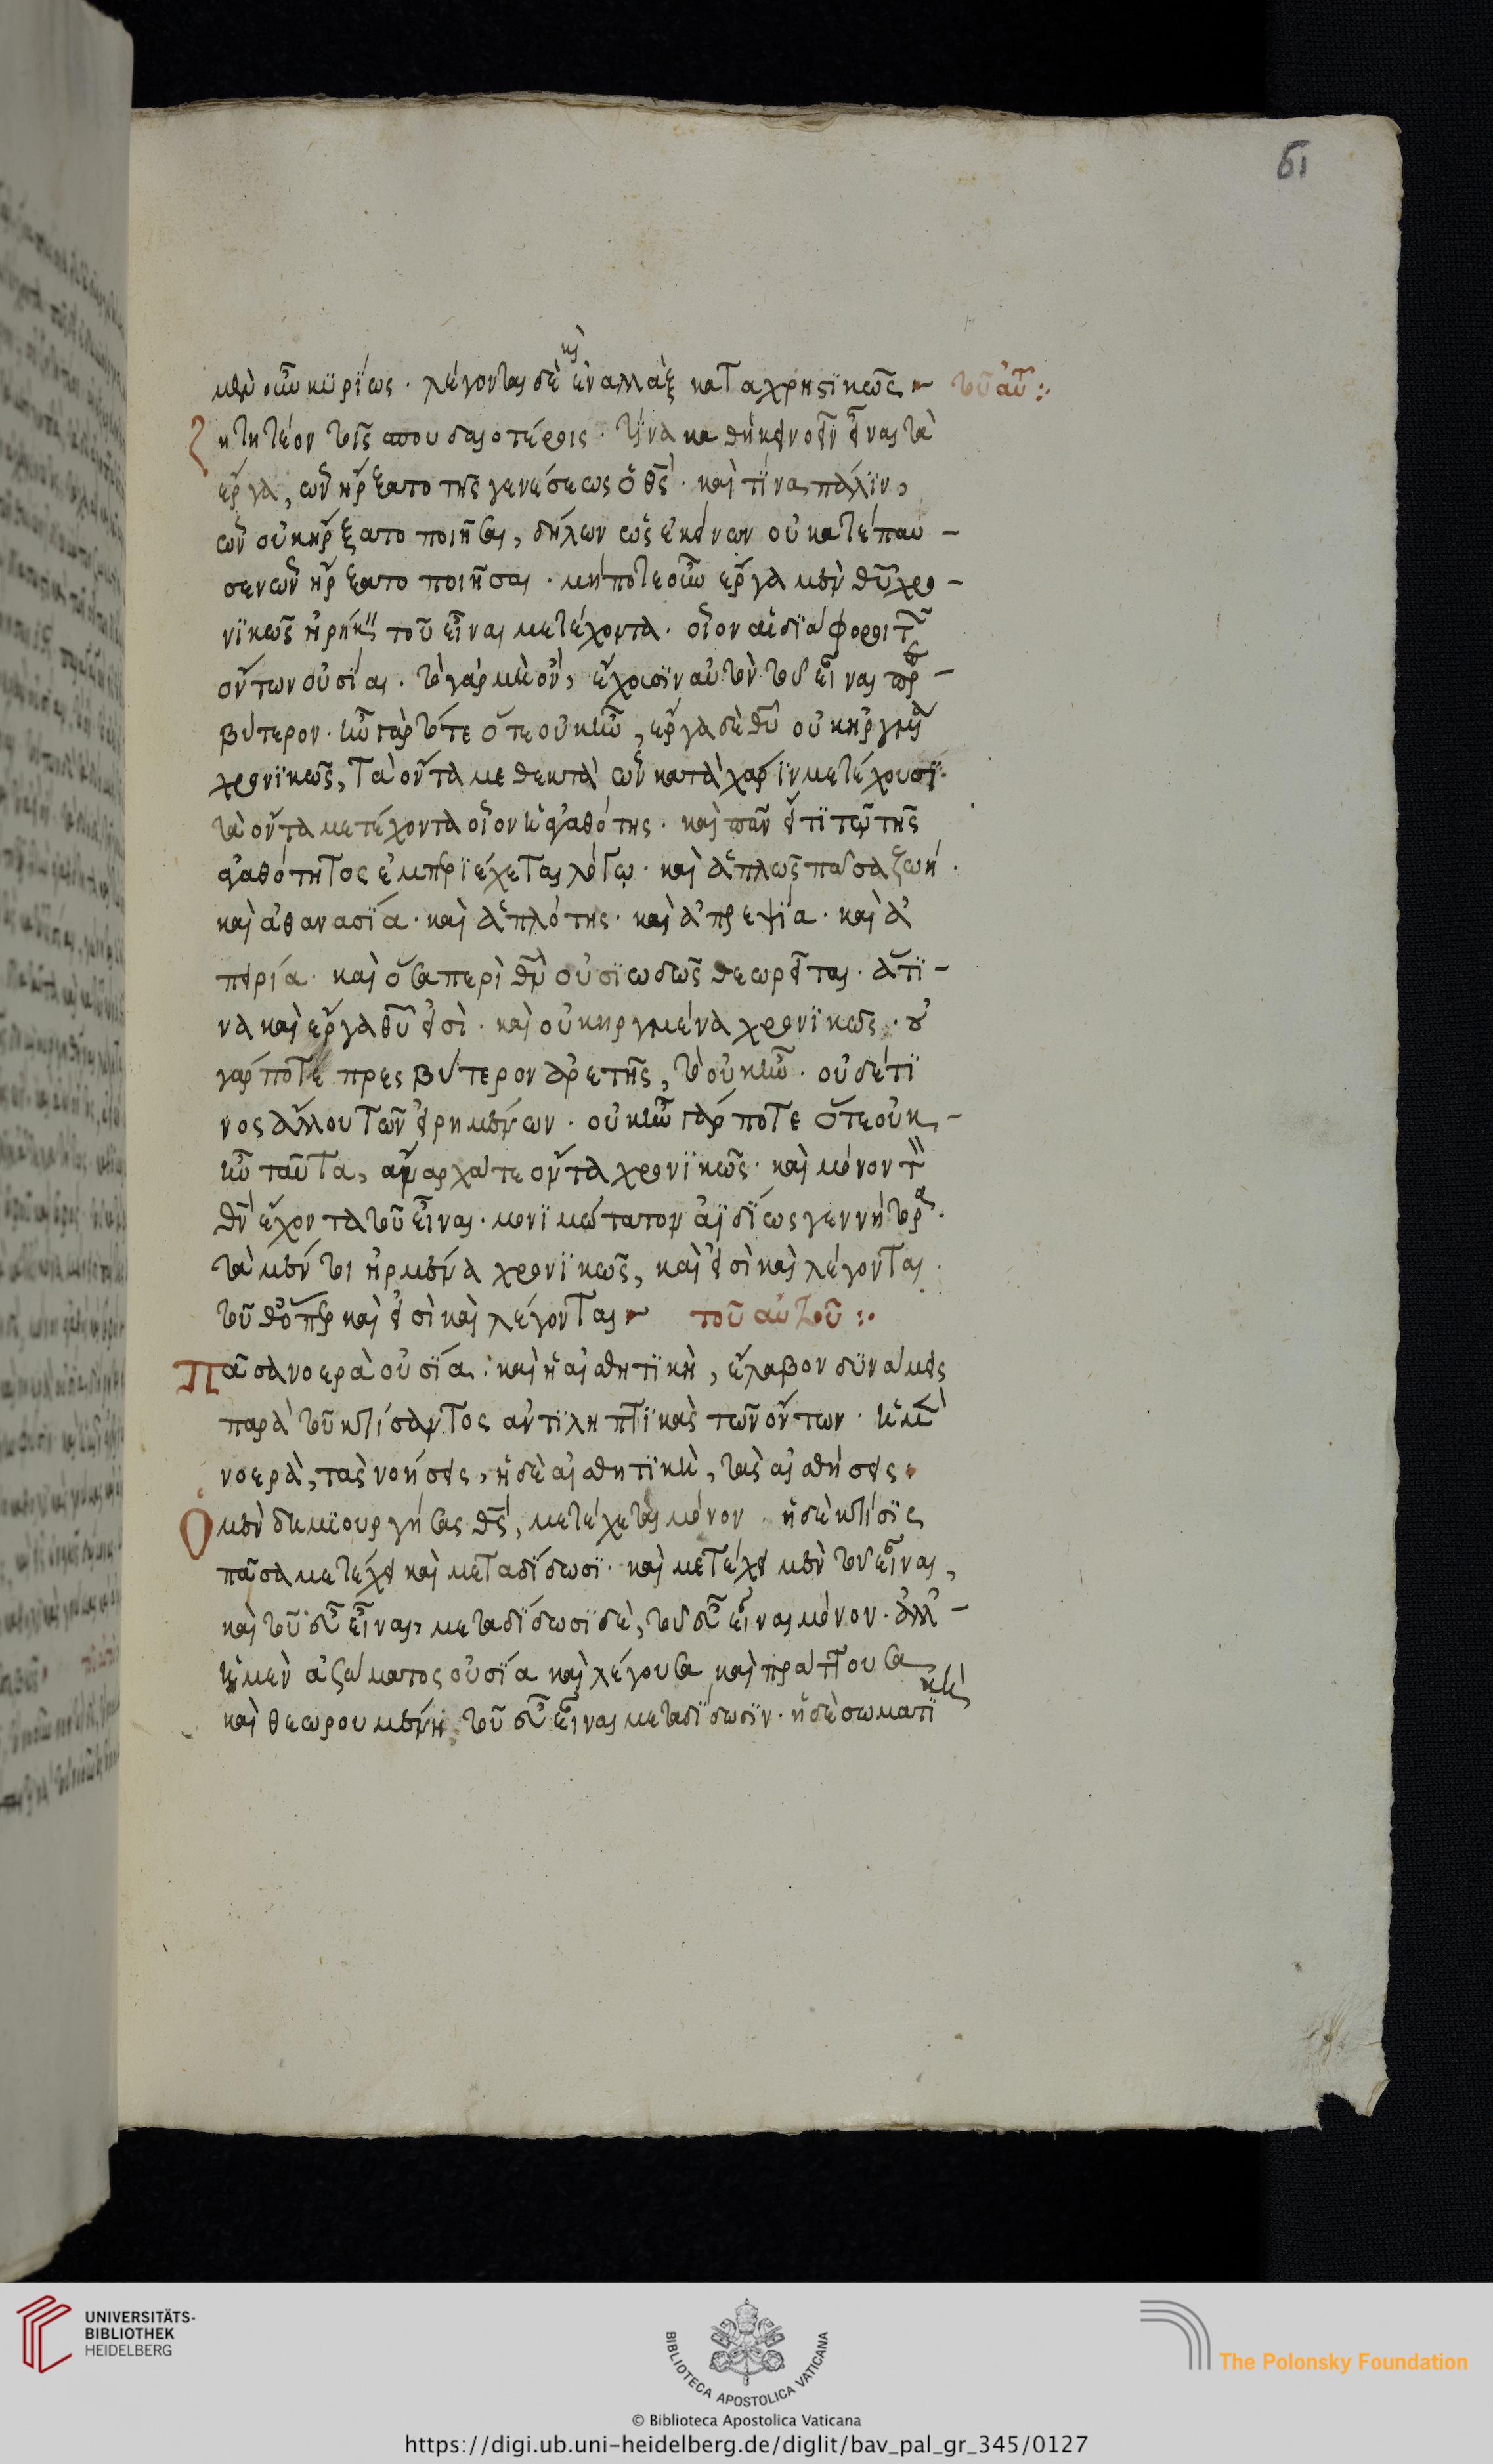 61
μὲν οὖν κυρίως· λέγονται δὲ καὶ ἐναλλὰξ καταχρηστικῶς· τοῦ αὐτοῦ:
Ζητητέον τοῖς σπουδαιοτέροις· τίνα καθήκει νοεῖν εἶναι τὰ
ἔργα, ὧν ἤρξατο τῆς γενέσεως ὁ θς· καὶ τίνα πάλιν,
ὧν οὐκ ἤρξατο ποιῆσαι, δήλων ὡς ἐκείνων οὐ κατέπαυ-
σεν ὧν ἤρξατο ποιῆσαι· μήποτε οὖν ἔργα μὲν θυ χρο-
νικῶς ἠργμένα τοῦ εἶναι μετέχοντα· οἷον αἱ διάφοροι τῶν
ὄντων οὐσίαι· τὸ γὰρ μὴ ὄν, ἔχουσιν αὐτῶν τοῦ εἶναι πρεσ-
βύτερον· ἦν γάρ ποτε ὅτε οὐκ ἦν, ἔργα δὲ θυ οὐκ ἠργμένα
χρονικῶς, τὰ ὄντα μεθεκτὰ ὧν κατὰ χάριν μετέχουσι
τὰ ὄντα μετέχοντα οἷον ἡ ἀγαθότης· καὶ πᾶν εἴ τι τῷ τῆς
ἀγαθότητος ἐμπεριέχεται λόγῳ· καὶ ἁπλῶς πᾶσα ζωή·
καὶ ἀθανασία· καὶ ἁπλότης· καὶ ἀτρεψία· καὶ ἀ
πειρία· καὶ ὅσα περὶ θν οὐσιωδῶς θεωρεῖται· ἅτι-
να καὶ ἔργα θυ εἰσὶ· καὶ οὐκ ἠργμένα χρονικῶς· οὐ
γάρ ποτε πρεσβύτερον ἀρετῆς, τὸ οὐκ ἦν· οὐδέ τι
νος ἄλλου τῶν εἰρημένων· οὐκ ἦν γάρ ποτε ὅτε οὐκ
ἦν ταῦτα, ἄναρχά τε ὄντα χρονικῶς· καὶ μόνον τὸν
θν ἔχοντα τοῦ εἶναι· μονιμώτατον ἀϊδίως γεννήτορα·
τὰ μέν τοι ἠργμένα χρονικῶς, καὶ εἰσὶ καὶ λέγονται
τοῦθ ὅπερ καὶ εἰσὶ καὶ λέγονται· τοῦ αὐτοῦ:
Πᾶσα νοερὰ οὐσία· καὶ ἡ αἰσθητικὴ, ἔλαβον δυνάμεις
παρὰ τοῦ κτίσαντος ἀντιληπτικὰς τῶν ὄντων· ἡ μὲν
νοερὰ, τὰς νοήσεις, ἡ δὲ αἰσθητικὴ, τὰς αἰσθήσεις·
Ὁ μὲν δημιουργήσας θς, μετέχεται μόνον· ἡ δὲ κτίσις
πᾶσα μετέχει καὶ μεταδίδωσι· καὶ μετέχει μὲν τοῦ εἶναι,
καὶ τοῦ εὖ εἶναι, μεταδίδωσι δὲ, τοῦ εὖ εἶναι μόνον· ἀλλ-
ἡ μὲν ἀσώματος οὐσία καὶ λέγουσα καὶ πράττουσα
καὶ θεωρουμένη, τοῦ εὖ εἶναι μεταδίδωσιν· ἡ δὲ σωματικὴ
UNIVERSITÄTS-
BIBLIOTHEK
HEIDELBERG
BIBLIOTECA APOSTOLICA VATICANA
The Polonsky Foundation
© Biblioteca Apostolica Vaticana
https://digi.ub.uni-heidelberg.de/diglit/bav_pal_gr_345/0127